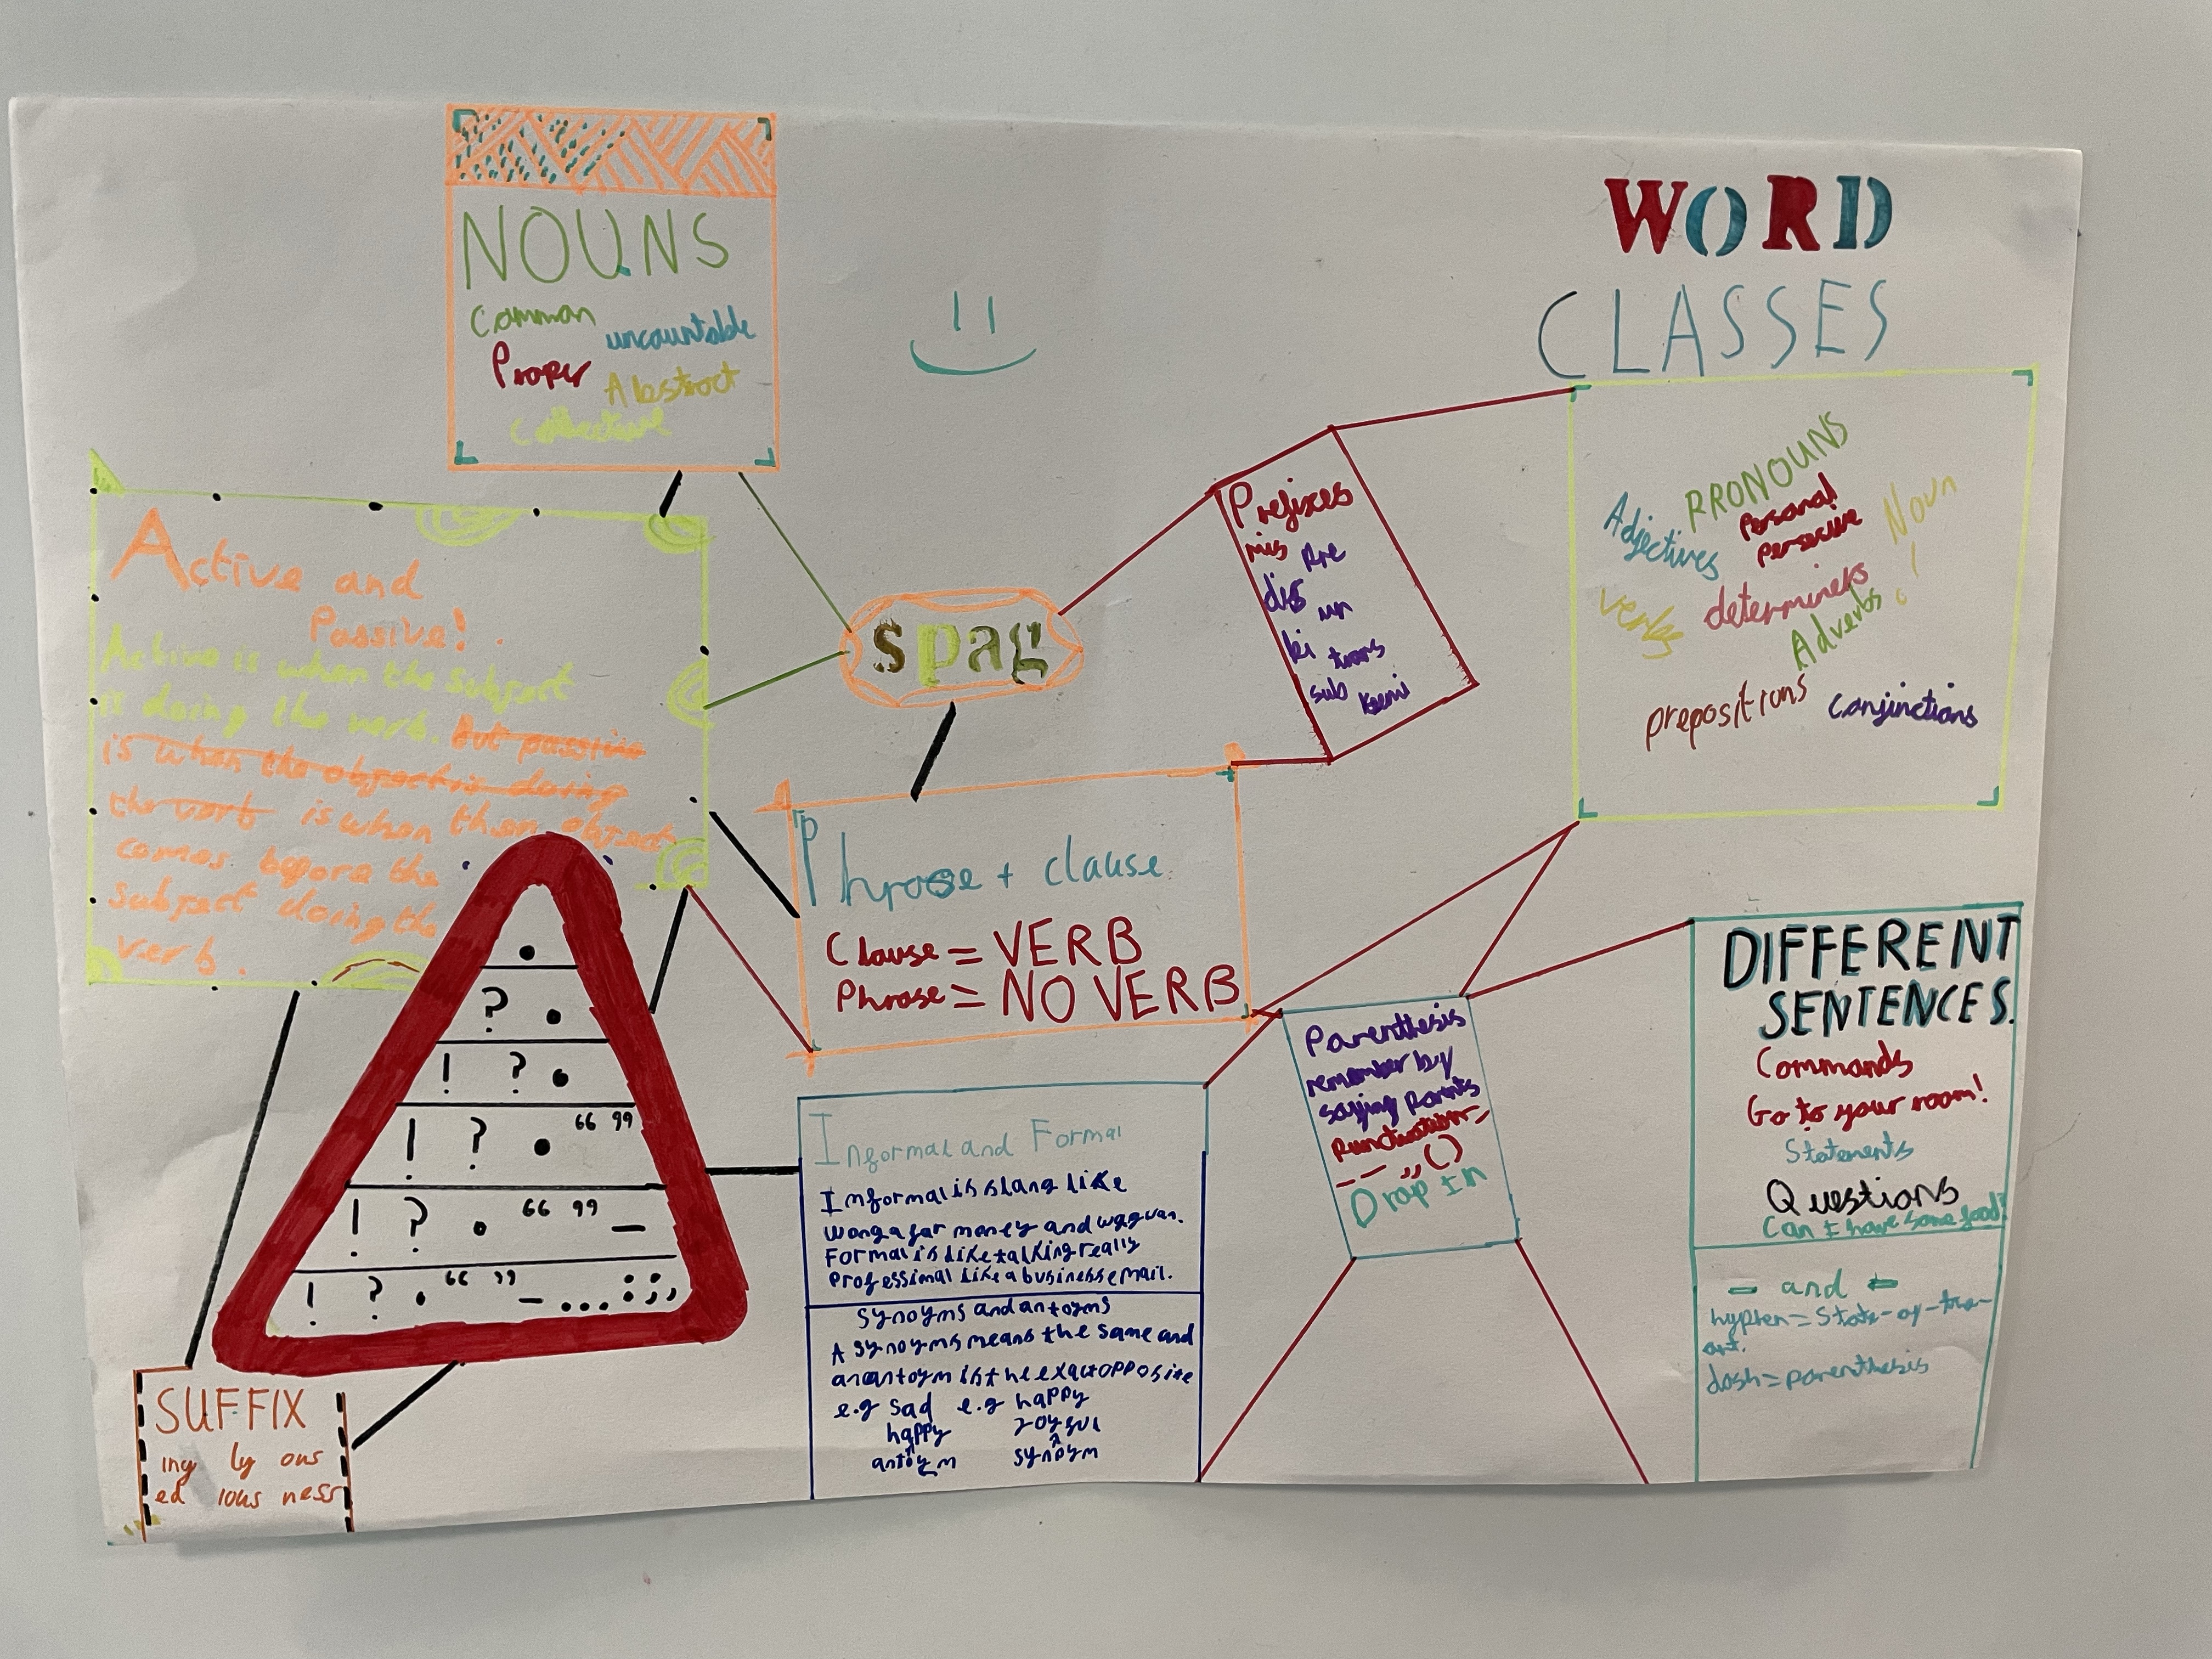 NOUNS
Common
uncountable
Proper
Abstract
Collective
WORD
CLASSES
PRONOUNS
Personal
Adjectives
Noun
verbs
determiners
Adverbs
prepositions
conjinctions
Prefixes
mis Pre
dis un
bi trans
sub semi
spag
Active and
Passive!.
Active is when the subject
is doing the verb. But passive
is when the object is doing
the verb is when then object
comes before the
subject doing the
verb.
Phrase + clause
Clause = VERB
Phrase = NO VERB
.
? .
! ? .
! ? . “ ”
! ? . “ ” —
! ? . “ ” – ... : ; ,
SUFFIX
ing ly ous
ed ious ness
Informal and Formal
Informal is slang like
wonga for money and wagwan.
Formal is like talking really
Professional like a business email.
Synoyms and antoyms
A synoyms means the same and
an antoym is the exact opposite
e.g sad e.g happy
happy joyful
antoym synoym
Parenthesis
remember by
saying Parents
Punctuation –
– – ,, ( )
Drop In
DIFFERENT
SENTENCES.
Commands
Go to your room!
Statements
Questions
Can I have some food?
– and -
hyphen = State-of-the-
art.
dash = parenthesis